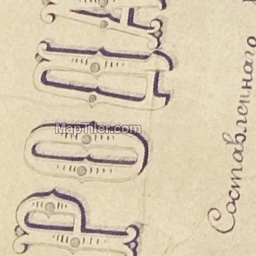 РОЦА
Составленнаго
MapTiler.com